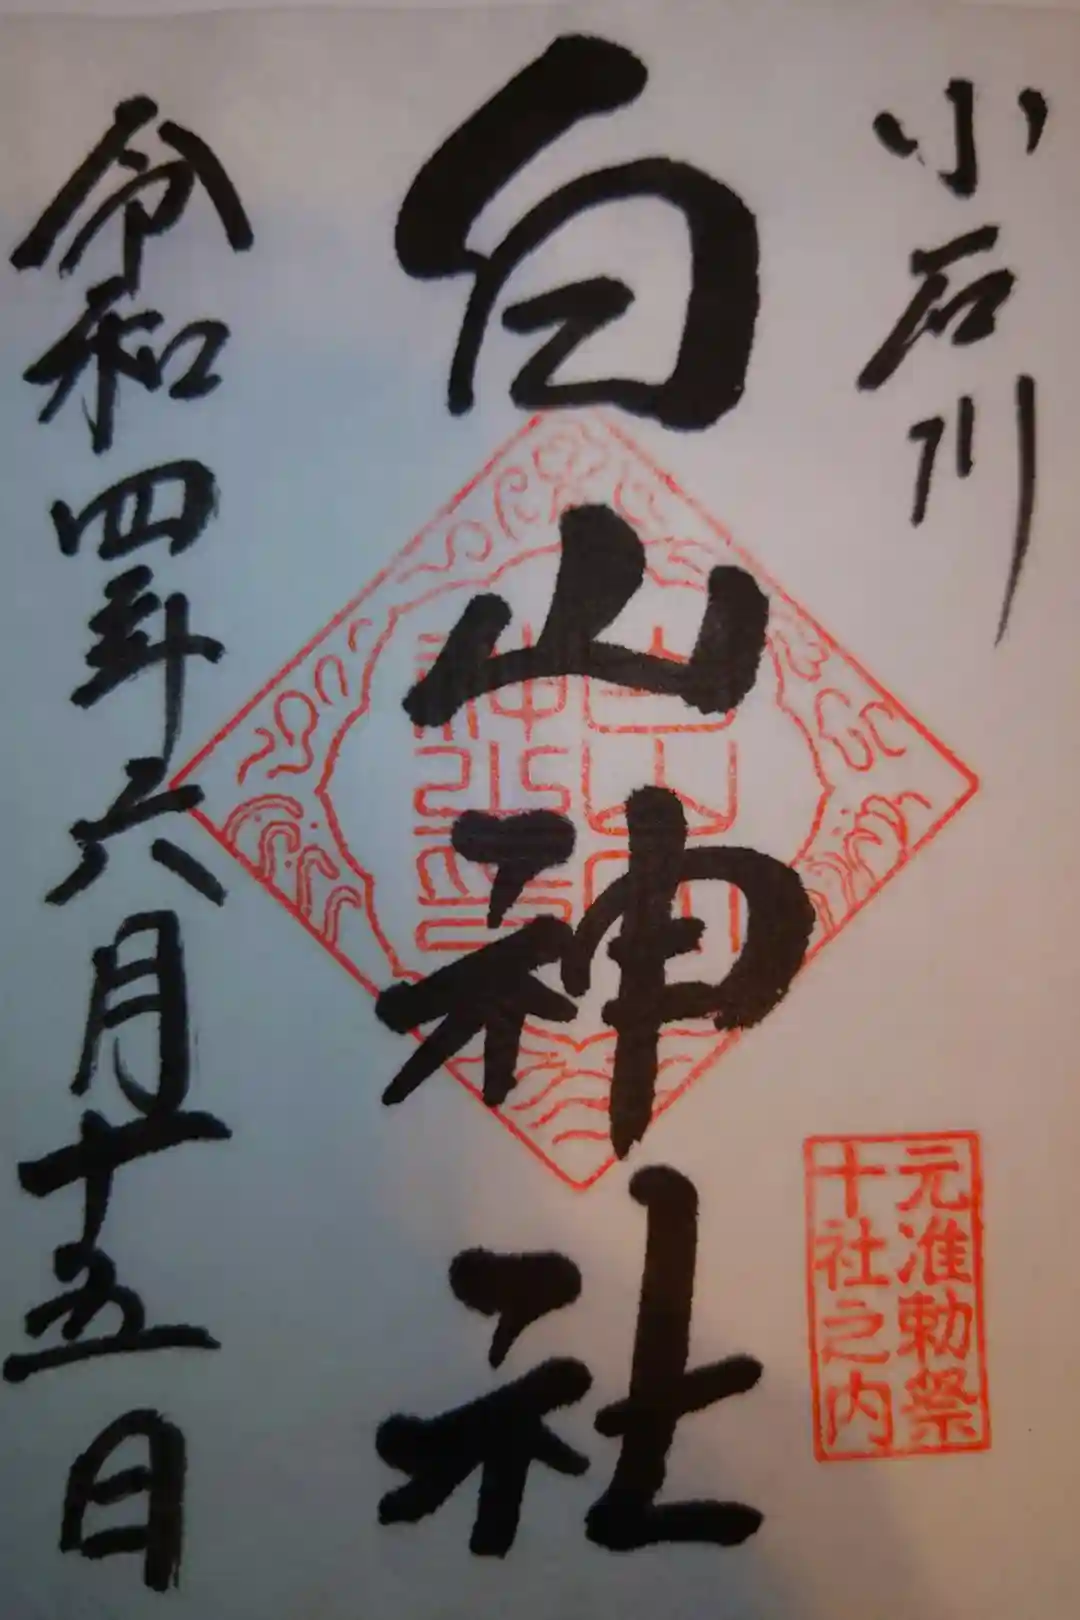 小石川
元准勅祭
十社之内
白山神社
令和四年六月十五日